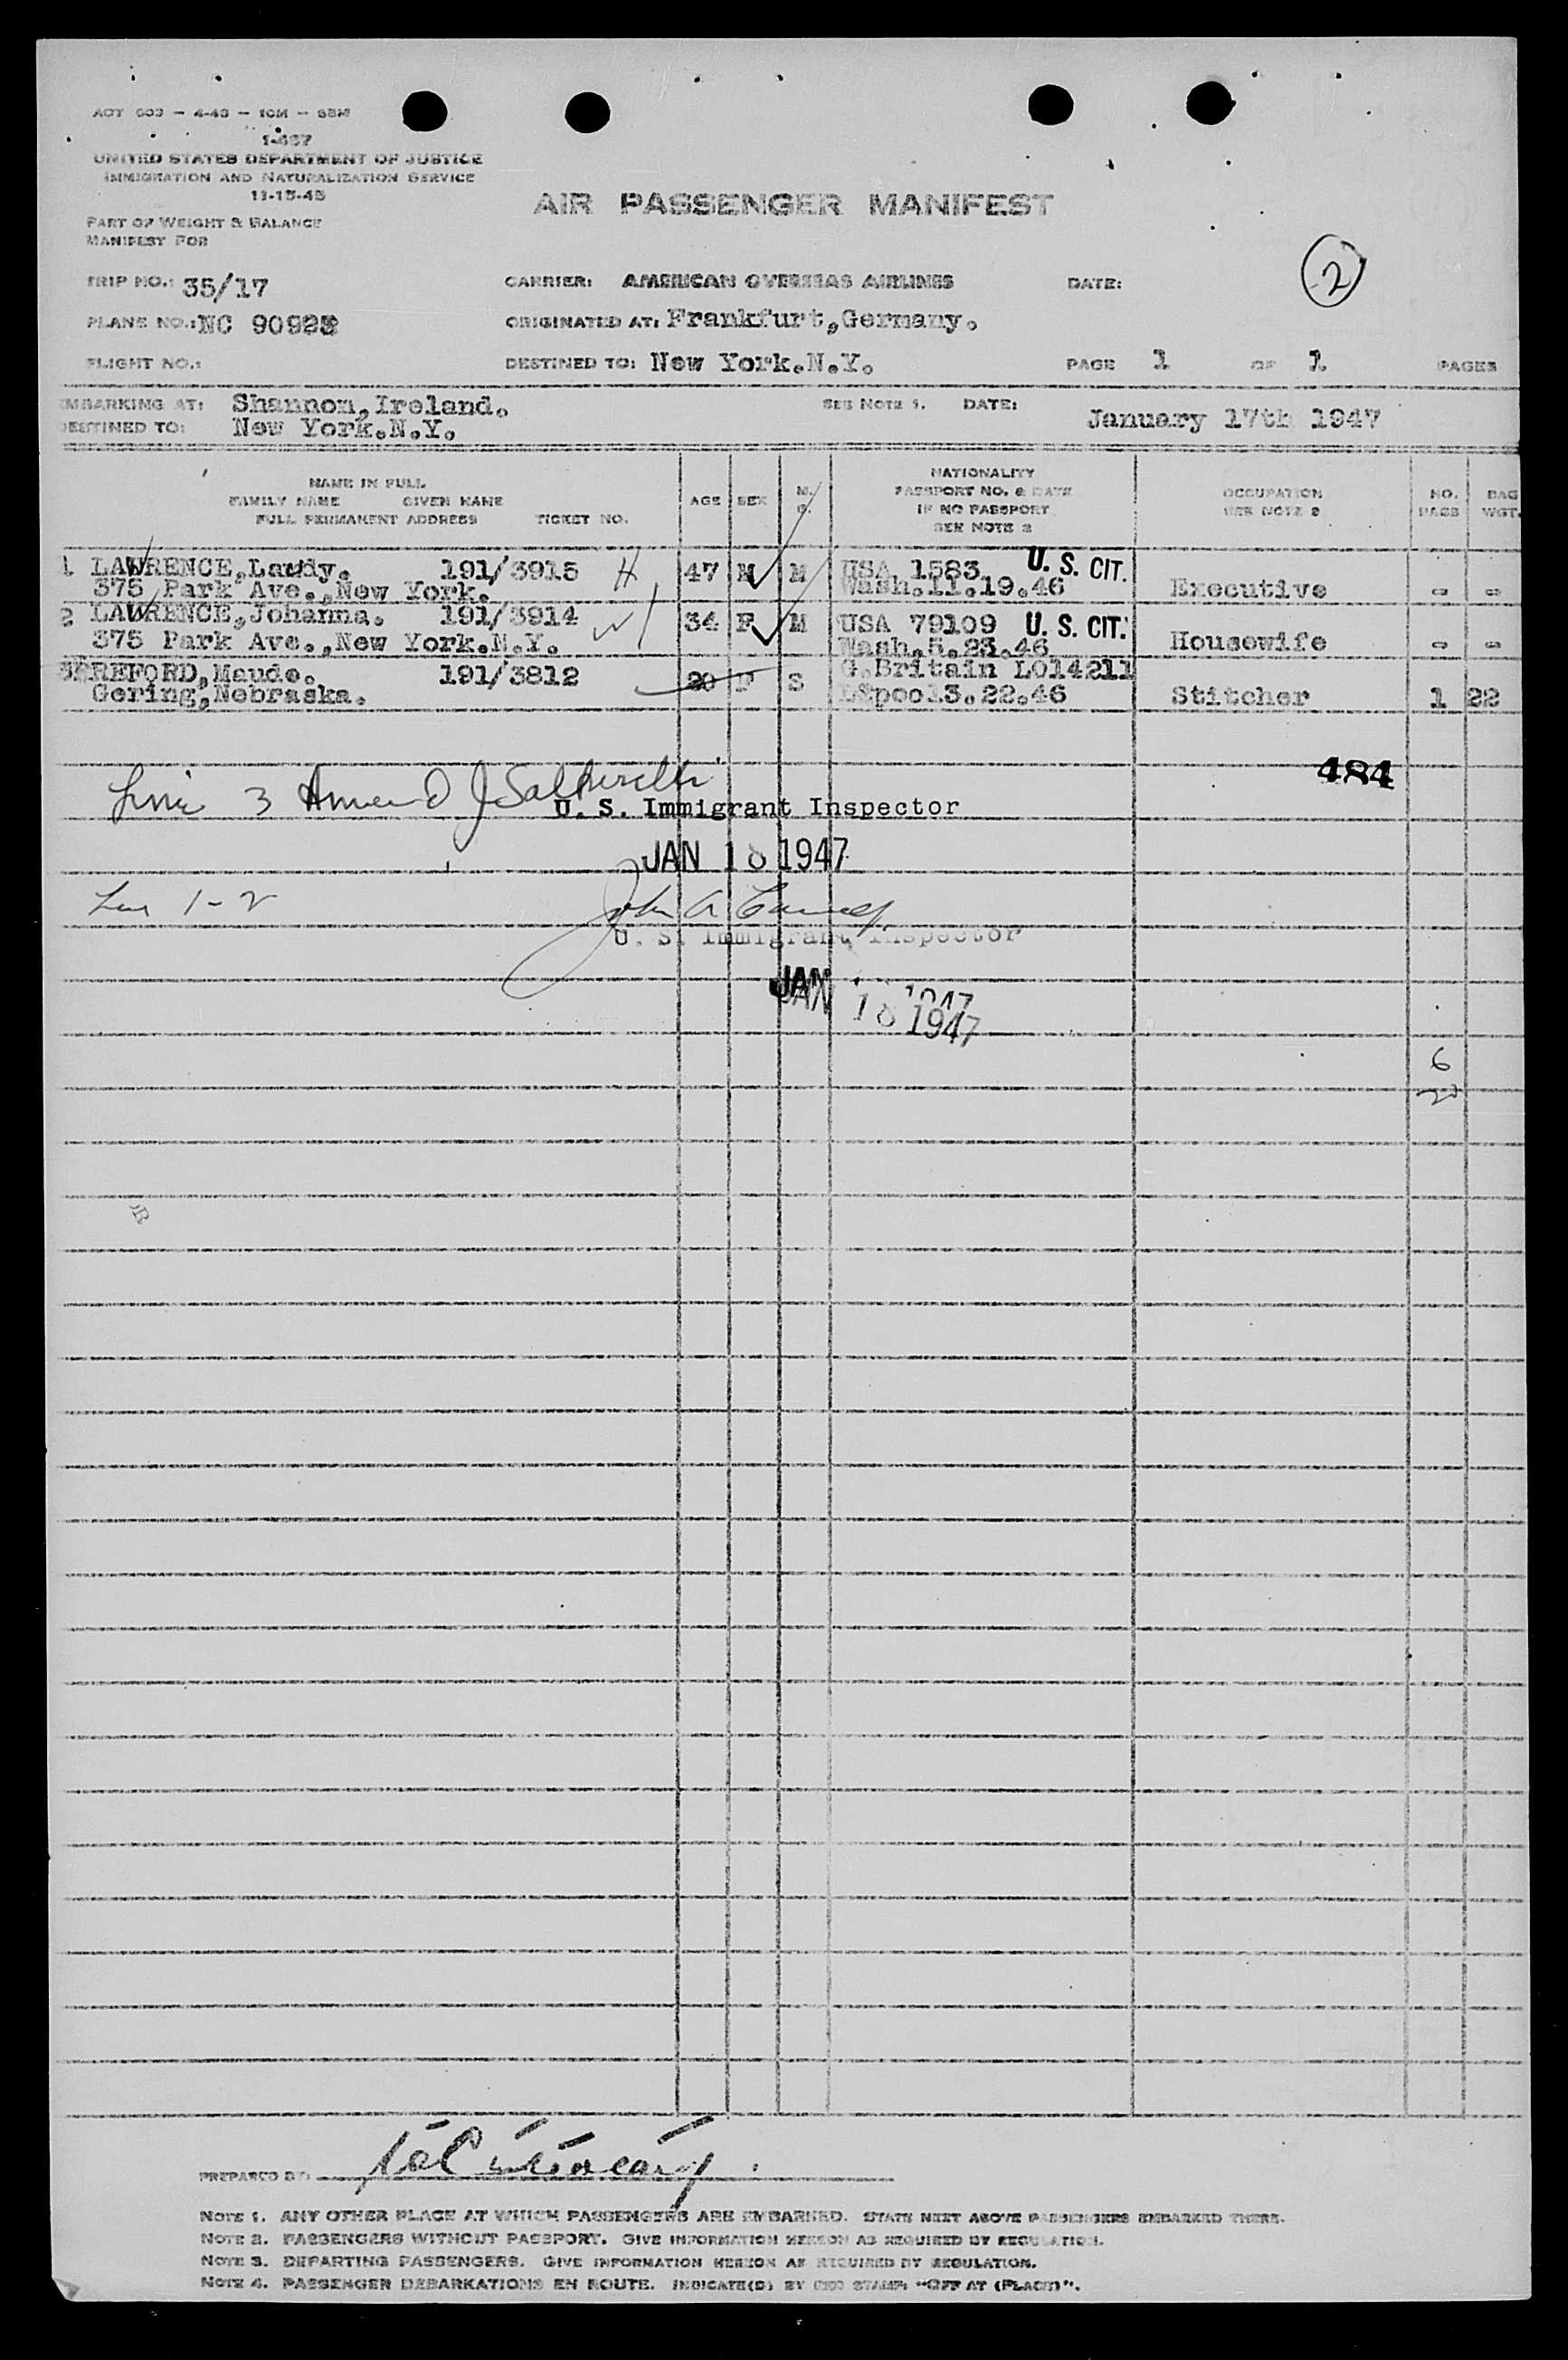 ACT 603 - 4-48 - 10M - SBM
1-487
UNITED STATES DEPARTMENT OF JUSTICE
IMMIGRATION AND NATURALIZATION SERVICE
11-15-45
AIR PASSENGER MANIFEST
PART OF WEIGHT & BALANCE
MANIFEST FOR
2
TRIP NO.: 35/17 CARRIER: AMERICAN OVERSEAS AIRLINES DATE:
PLANE NO.: NC 90922 ORIGINATED AT: Frankfurt,Germany.
FLIGHT NO.: DESTINED TO: New York.N.Y. PAGE 1 OF 1 PAGES
EMBARKING AT: Shannon,Ireland. SEE NOTE 1. DATE: January 17th 1947
DESTINED TO: New York.N.Y.
NAME IN FULL
FAMILY NAME GIVEN NAME
FULL PERMANENT ADDRESS TICKET NO.
AGE SEX M. S.
NATIONALITY
PASSPORT NO. & DATE
IF NO PASSPORT
SEE NOTE 2
OCCUPATION
SEE NOTE 2
NO. PASS
BAG WGT.
1 LAWRENCE,Laudy. 191/3915 H 47 M M USA 1583 U. S. CIT.
375 Park Ave.,New York. Wash.11.19.46 Executive - -
2 LAWRENCE,Johanna. 191/3914 W 34 F M USA 79109 U. S. CIT.
375 Park Ave.,New York.N.Y. Wash.5.23.46 Housewife - -
REFORD,Maude. 191/3812 20 F S G.Britain LO14211
Gering,Nebraska. L'pool3.22.46 Stitcher 1 22
484
Line 3
U. S. Immigrant Inspector
JAN 18 1947
1-2 John A
U. S. Immigrant Inspector
JAN 1947
JAN 18 1947
6
PREPARED BY:
NOTE 1. ANY OTHER PLACE AT WHICH PASSENGERS ARE EMBARKED. STATE NEXT ABOVE PASSENGERS EMBARKED THERE.
NOTE 2. PASSENGERS WITHOUT PASSPORT. GIVE INFORMATION HEREON AS REQUIRED BY REGULATION.
NOTE 3. DEPARTING PASSENGERS. GIVE INFORMATION HEREON AS REQUIRED BY REGULATION.
NOTE 4. PASSENGER DEBARKATIONS EN ROUTE. INDICATE(D) BY STAMP: "OFF AT (PLACE)".